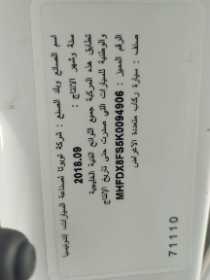 اسم الصانع وبلد الصنع : شركة تويوتا لصناعة السيارات اندونيسيا
سنة وشهر الانتاج :
2018.09
تطابق هذه المركبة جميع اللوائح الفنية الخليجية
والوطنية للسيارات التى صدرت حتى تاريخ الانتاج
الرقم المميز : MHFDX8FS5K0094906
صنف : سيارة ركاب متعددة الاغراض
71110